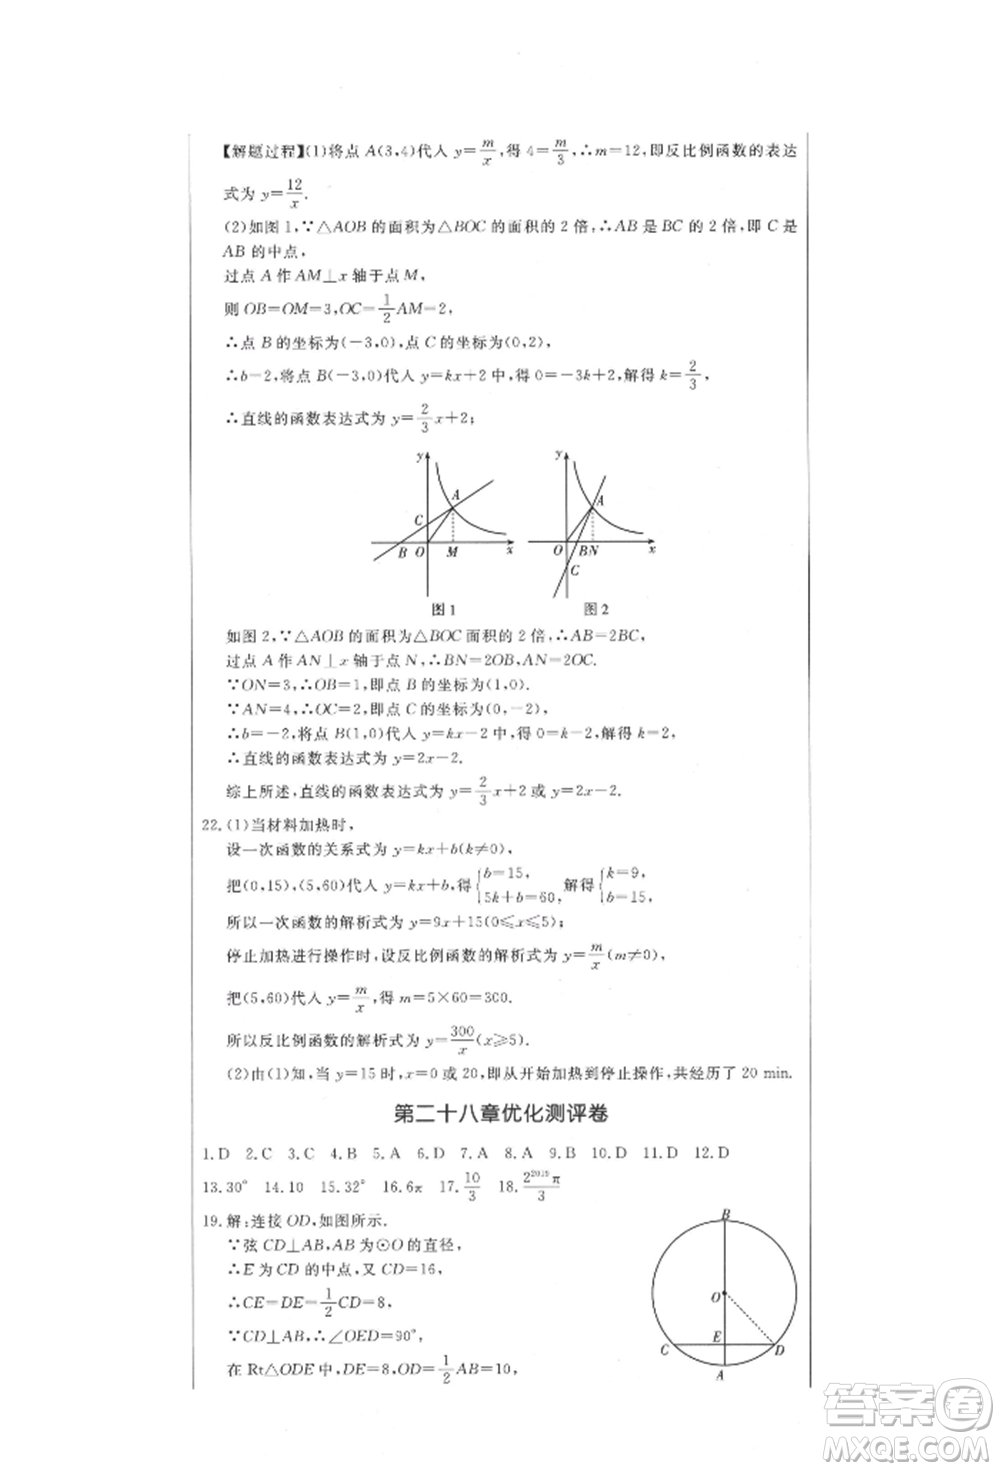 【解题过程】(1)将点 A(3,4)代人 y=m/x,得 4=m/3,∴m=12,即反比例函数的表达
式为 y=12/x.
(2)如图 1,∵△AOB 的面积为△BOC 的面积的 2 倍,∴AB 是 BC 的 2 倍,即 C 是
AB 的中点,
过点 A 作 AM⊥x 轴于点 M,
则 OB=OM=3,OC=1/2AM=2,
∴点 B 的坐标为(-3,0),点 C 的坐标为(0,2),
∴b=2,将点 B(-3,0)代人 y=kx+2 中,得 0=-3k+2,解得 k=2/3,
∴直线的函数表达式为 y=2/3x+2;
y A C B O M x
图 1
y A O B N x C
图 2
如图 2,∵△AOB 的面积为△BOC 面积的 2 倍,∴AB=2BC,
过点 A 作 AN⊥x 轴于点 N,∴BN=2OB,AN=2OC.
∵ON=3,∴OB=1,即点 B 的坐标为(1,0).
∵AN=4,∴OC=2,即点 C 的坐标为(0,-2),
∴b=-2,将点 B(1,0)代人 y=kx-2 中,得 0=k-2,解得 k=2,
∴直线的函数表达式为 y=2x-2.
综上所述,直线的函数表达式为 y=2/3x+2 或 y=2x-2.
22.(1)当材料加热时,
设一次函数的关系式为 y=kx+b(k≠0),
把(0,15),(5,60)代人 y=kx+b,得{b=15, 5k+b=60,解得{k=9, b=15.
所以一次函数的解析式为 y=9x+15(0≤x≤5);
停止加热进行操作时,设反比例函数的解析式为 y=m/x(m≠0),
把(5,60)代人 y=m/x,得 m=5×60=300.
所以反比例函数的解析式为 y=300/x(x≥5).
(2)由(1)知,当 y=15 时,x=0 或 20,即从开始加热到停止操作,共经历了 20 min.
第二十八章优化测评卷
1.D 2.C 3.C 4.B 5.A 6.D 7.A 8.A 9.B 10.D 11.D 12.D
13.30° 14.10 15.32° 16.6π 17.10/3 18.2^2019π/3
19.解:连接 OD,如图所示.
∵弦 CD⊥AB,AB 为⊙O 的直径,
∴E 为 CD 的中点,又 CD=16,
∴CE=DE=1/2CD=8,
∵CD⊥AB,∴∠OED=90°,
在 Rt△ODE 中,DE=8,OD=1/2AB=10,
B
O
C E D
A
答案卷
MXQE.COM